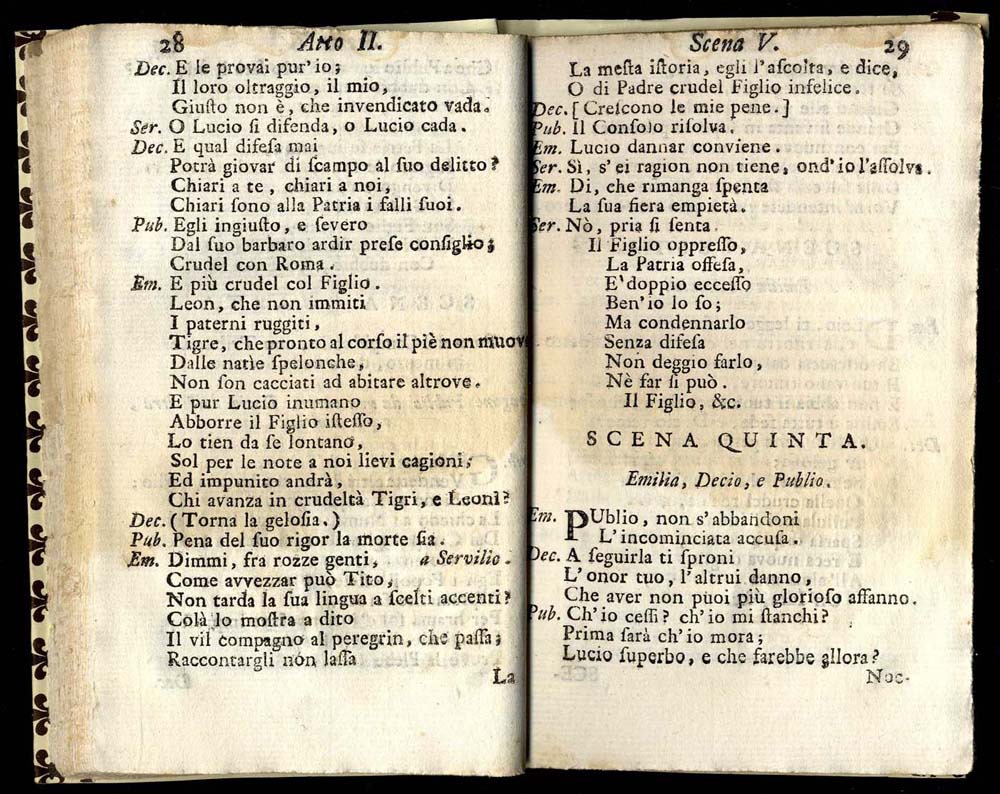 28 Atto II.
Dec. E le provai pur' io;
Il loro oltraggio, il mio,
Giuſto non è, che invendicato vada.
Ser. O Lucio ſi difenda, o Lucio cada.
Dec. E qual difeſa mai
Potrà giovar di ſcampo al ſuo delitto?
Chiari a te, chiari a noi,
Chiari ſono alla Patria i falli ſuoi.
Pub. Egli ingiuſto, e ſevero
Dal ſuo barbaro ardir preſe conſiglio;
Crudel con Roma.
Em. E più crudel col Figlio.
Leon, che non immiti
I paterni ruggiti,
Tigre, che pronto al corſo il piè non muov
Dalle natìe ſpelonche,
Non ſon cacciati ad abitare altrove.
E pur Lucio inumano
Abborre il Figlio iſteſſo,
Lo tien da ſe lontano,
Sol per le note a noi lievi cagioni;
Ed impunito andrà,
Chi avanza in crudeltà Tigri, e Leoni?
Dec. (Torna la geloſia.)
Pub. Pena del ſuo rigor la morte ſia.
Em. Dimmi, fra rozze genti, a Servilio.
Come avvezzar può Tito,
Non tarda la ſua lingua a ſcelti accenti?
Colà lo moſtra a dito
Il vil compagno al peregrin, che paſſa;
Raccontargli nòn laſſa
La
Scena V. 29
La meſta iſtoria, egli l'aſcolta, e dice,
O di Padre crudel Figlio infelice.
Dec. [Creſcono le mie pene.]
Pub. Il Conſolo riſolva.
Em. Lucio dannar conviene.
Ser. Sì, s'ei ragion non tiene, ond'io l'aſſolva.
Em. Di, che rimanga ſpenta
La ſua fiera empietà.
Ser. Nò, pria ſi ſenta.
Il Figlio oppreſſo,
La Patria offeſa,
E' doppio ecceſſo
Ben'io lo ſo;
Ma condennarlo
Senza difeſa
Non deggio farlo,
Nè far ſi può.
Il Figlio, &c.
SCENA QUINTA.
Emilia, Decio, e Publio.
Em. PUblio, non s'abbandoni
L'incominciata accuſa.
Dec. A ſeguirla ti ſproni
L'onor tuo, l'altrui danno,
Che aver non puoi più glorioſo affanno.
Pub. Ch'io ceſſi? ch'io mi ſtanchi?
Prima ſarà ch'io mora;
Lucio ſuperbo, e che farebbe allora?
Noc-